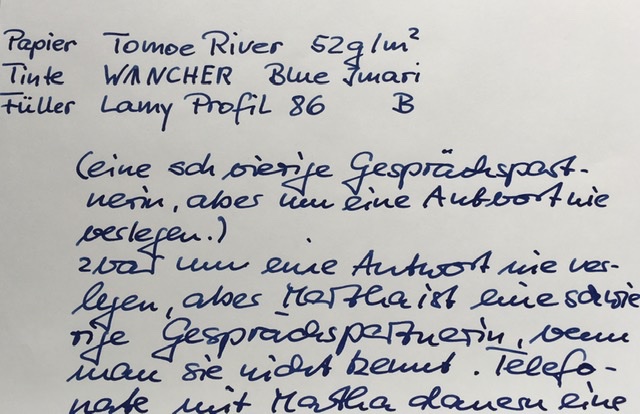 Papier Tomoe River 52g/m²
Tinte WANCHER Blue Imari
Füller Lamy Profil 86 B
(eine schwierige Gesprächspart-
nerin, aber um eine Antwort nie
verlegen.)
zwar um eine Antwort nie ver-
legen, aber Martha ist eine schwie
rige Gesprächspartnerin, wenn
man sie nicht kennt. Telefo-
nate mit Martha dauern eine